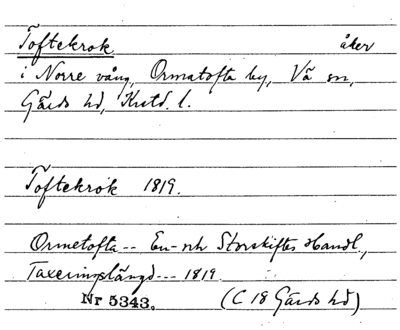 Toftekrok åker
i Norre vång, Ormatofta by, Vä sn,
Gärds hd, Kristd. l.
Toftekrok 1819.
Ormetofta -- En- och Storskiftes Handl.,
Taxeringslängd --- 1819.
Nr 5343. (C 18 Gärds hd)